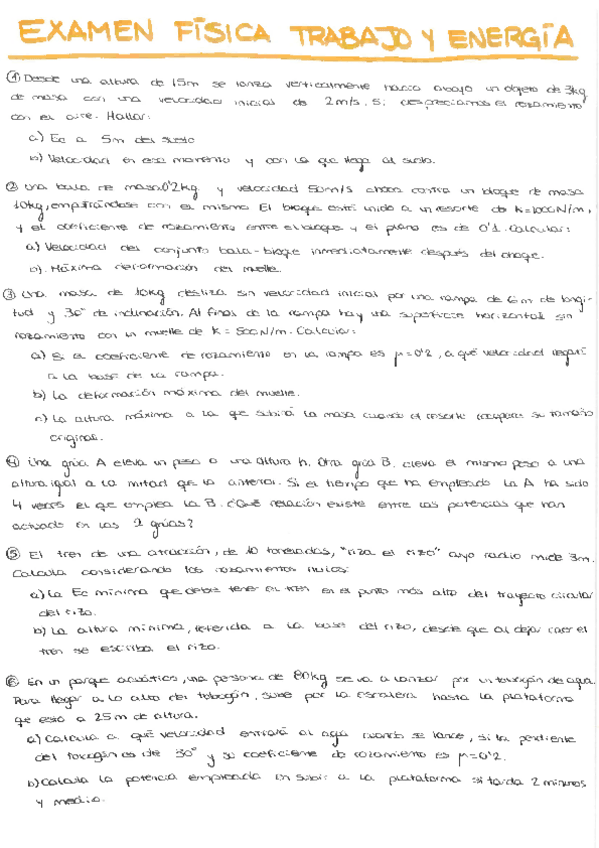 EXAMEN FÍSICA TRABAJO Y ENERGÍA
① Desde una altura de 15m se lanza verticalmente hacia abajo un objeto de 3kg
de masa con una velocidad inicial de 2m/s. Si despreciamos el rozamiento
con el aire. Hallar:
a) Ec a 5m del suelo
b) Velocidad en ese momento y con la que llega al suelo.
② Una bala de masa 0'2kg y velocidad 50m/s choca contra un bloque de masa
10kg, empotrándose con el mismo. El bloque está unido a un resorte de K=1000N/m,
y el coeficiente de rozamiento entre el bloque y el plano es de 0'1. Calcular:
a) Velocidad del conjunto bala-bloque inmediatamente después del choque.
b) Máxima deformación del muelle.
③ Una masa de 10kg desliza sin velocidad inicial por una rampa de 6m de longi-
tud y 30° de inclinación. Al final de la rampa hay una superficie horizontal sin
rozamiento con un muelle de K = 500N/m. Calcular:
a) Si el coeficiente de rozamiento en la rampa es μ=0'2, a qué velocidad llegará
a la base de la rampa.
b) La deformación máxima del muelle.
c) La altura máxima a la que subirá la masa cuando el resorte recupere su tamaño
original.
④ Una grúa A eleva un peso a una altura h. Otra grúa B eleva el mismo peso a una
altura igual a la mitad que la anterior. Si el tiempo que ha empleado la A ha sido
4 veces el que emplea la B. ¿Qué relación existe entre las potencias que han
actuado en las 2 grúas?
⑤ El tren de una atracción, de 10 toneladas, "riza el rizo" cuyo radio mide 3m.
Calcula considerando los rozamientos nulos:
a) La Ec mínima que debe tener el tren en el punto más alto del trayecto circular
del rizo.
b) La altura mínima, referida a la base del rizo, desde que al dejar caer el
tren se escriba el rizo.
⑥ En un parque acuático, una persona de 80kg se va a lanzar por un tobogán de agua.
Para llegar a lo alto del tobogán, sube por la escalera hasta la plataforma
que está a 25m de altura.
a) Calcula a qué velocidad entrará al agua cuando se lance, si la pendiente
del tobogán es de 30° y su coeficiente de rozamiento es μ=0'2.
b) Calcula la potencia empleada en subir a la plataforma si tarda 2 minutos
y medio.